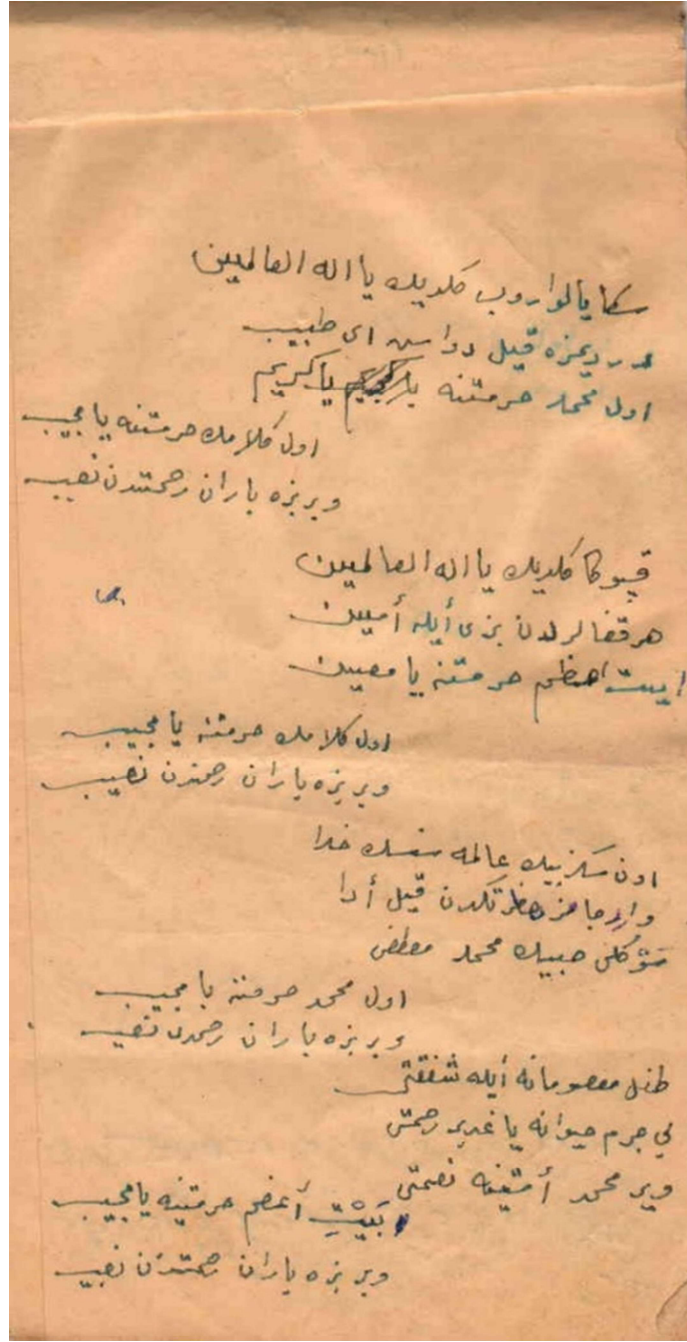 سكا يالواروب كلديك يا اله العالمين
دردیمزه قیل دواسن ای طبیب
اول محمد حرمتنه یا کریم
اول كلامك حرمتنه يا مجيب
ویر بزه باران رحمتندن نصیب
قپوکا کلدیك یا اله العالمین
هر قضالردن بزی أیله أمین
حرمتنه یا معین
اول كلامك حرمتنه يا مجيب
ویر بزه باران رحمتدن نصیب
اون سكز بيك عالمه سنسك خدا
قیل أدا
سَوْكلی حبیبك محمد مصطفی
اول محمد حرمتنه يا مجيب
ویر بزه باران رحمتدن نصیب
طفل معصومانه أیله شفقتی
بی جرم حیوانه یا رحمتی
ویر محمد أمّتینه نصمتی
بَيْتِ أعضم حرمتینه یا مجیب
ویر بزه باران رحمتدن نصیب